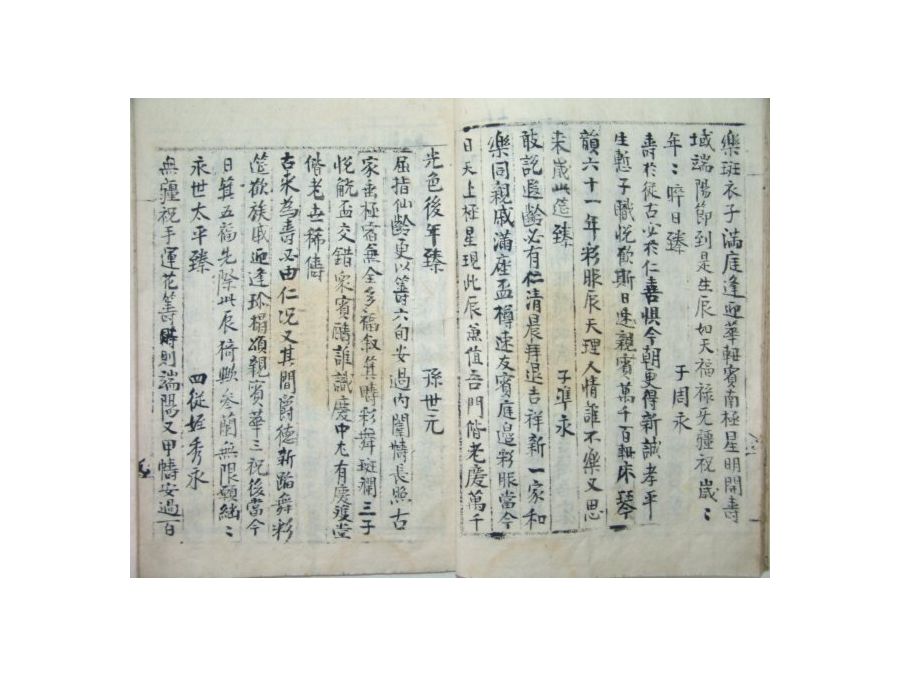 樂斑衣子滿庭逢迎華軒賓南極星明開壽
域端陽節到是生辰如天福祿旡疆祝歲〻
年〻晬日臻 子周永
壽於從古必於仁喜惧今朝更得新誠孝平
生慙子職悅歡斯日速親賓萬千百軸床琴
韻六十一年彩服辰天理人情誰不樂又思
來歲此筵臻 子準永
敢說遐齡必有仁淸晨拜退吉祥新一家和
樂同親戚滿座盃樽速友賓庭邉彩服當今
日天上極星現此辰蕙值吾門偕老慶萬千
光色後年臻 孫世元
屈指仙齡更以籌六旬安過內闈幬長照古
家垂極宿無全多福叙箕疇彩舞斑斕三子
悅觥盃交錯衆賓酬誰識慶中尤有慶雙堂
偕老世稀儔
古來爲壽必由仁况又其間爵德新蹈舞彩
筵歡族戚迎逢珍榻頌親賓華三祝後當今
日箕五福先際此辰猗歟参蘭無限顧緜〻
永世太平臻 四從姪秀永
無疆祝手運花籌時則端陽又甲幬安過一百